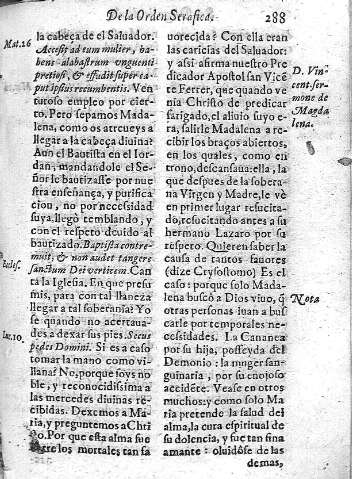 De la Orden Serafica. 288
la cabeça de el Saluador.
Mat.26
Accesit ad eum mulier, ha-
bens alabastrum vnguenti
pretiosi, & effudit super ca-
put ipsius recumbentis. Ven
turoso empleo por cier-
to. Pero sepamos Mada-
lena, como os atreueys a
llegar a la cabeça diuina?
Aun el Bautista en el Ior-
dan, mandandole el Se-
ñor le bautizasse por nu-
stra enseñança, y purifica
cion, no por necessidad
suya. llegò temblando, y
con el respeto deuido al
bautizado. Baptista contre-
muit, & non audet tangere
Eccles.
sanctum Dei verticem. Can
ta la Iglesia. En que presu
mis, para con tal llaneza
llegar a tal soberania? Yo
se quando no acertaua-
des a dexar sus pies. Secus
Luc.10.
pedes Domini. Si es a caso
tomar la mano como vi-
llana? No, porque soys no
ble, y reconocidissima a
las mercedes diuinas re-
cibidas. Dexemos a Ma-
ria, y preguntemos a Chri
Por que esta alma fue
tre los mortales tan fa
uorecida? Con ella eran
las caricias del Saluador:
y assi afirma nuestro Pre
dicador Apostol san Vicẽ
D. Vin-
cent. ser-
mone de
Magda
lena.
te Ferrer, que quando ve
nia Christo de predicar
farigado, el aliuio suyo e-
ra, salirle Madalena a re-
cibir los braços abiertos,
en los quales, como en
trono, descansaua: ella, la
que despues de la sobera-
na Virgen y Madre, le vè
en primer lugar resucita-
do, resucitando antes a su
hermano Lazaro por su
respeto. Quieren saber la
causa de tantos fauores
(dize Crysostomo) Es el
caso: porque solo Mada-
lena buscò a Dios viuo, q̃
Nota
otras personas iuan a bus-
carle por temporales ne-
cessidades. La Cananea
por su hija, posseyda del
Demonio: la muger san-
guinaria, por su enojoso
accidẽte. Vease en otros
muchos: y como solo Ma
ria pretende la salud del
alma, la cura espiritual de
su dolencia, y fue tan fina
amante: oluidose de las
demas,